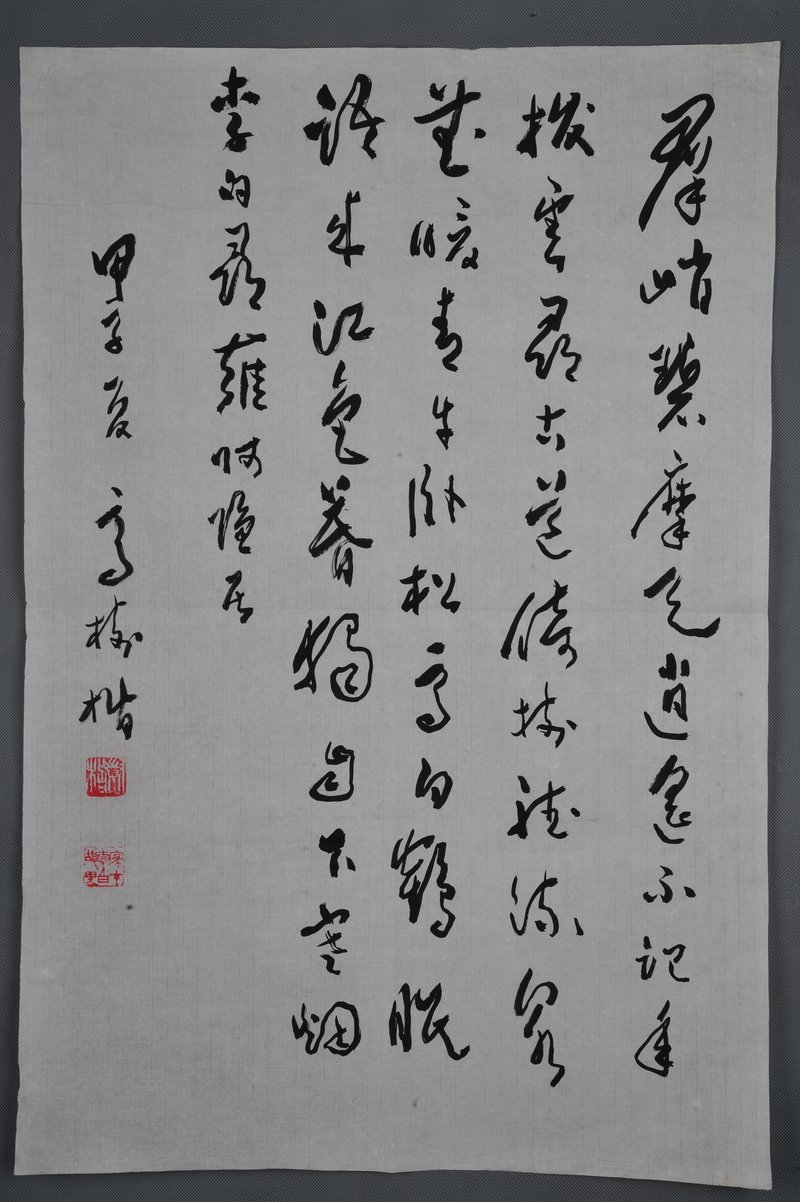 群峭碧摩天逍遥不记年
拨云寻古道倚树听流泉
花暖青牛卧松高白鹤眠
语来江色暮独自下寒烟
李白寻雍师隐居
甲子夏 高树楷